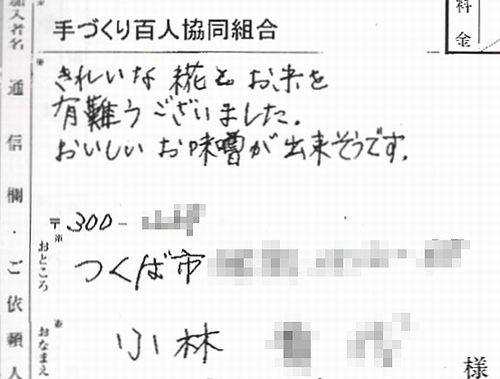 加入者名
手づくり百人協同組合
料金
きれいな糀とお米を
有難うございました。
おいしいお味噌が出来そうです。
通信欄・ご依頼人
〒300-
※
おところ
つくば市
※
おなまえ
小林
様